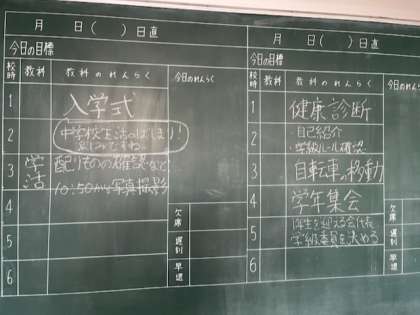 月 日( )日直
今日の目標
校時 教科 教科のれんらく 今日のれんらく
1 入学式
2 中学校生活のはじまり!
楽しみですね。
3 学活 配りものの確認など
10:50から写真撮影
4
5
6
欠席
遅刻
早退
月 日( )日直
今日の目標
校時 教科 教科のれんらく 今日のれんらく
1 健康診断
2 ・自己紹介
・学級ルール確認
3 自転車の移動
4 学年集会
5 1年生を迎える会代表
学級委員を決める
6
欠席
遅刻
早退